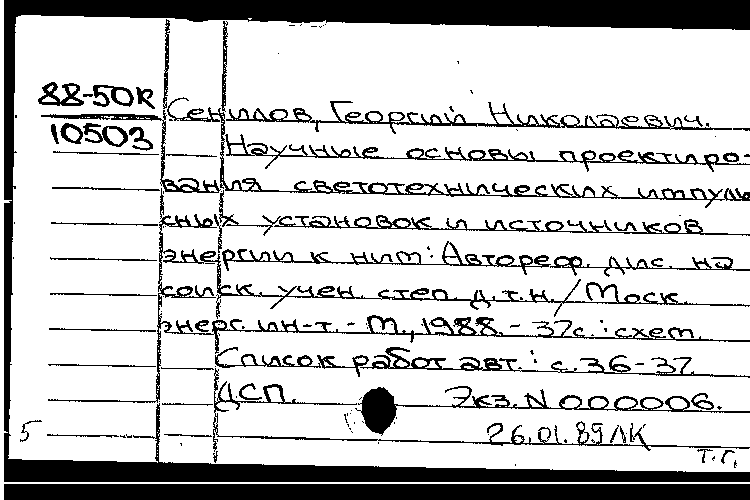 88-50К
10503
Сенилов, Георгий Николаевич.
Научные основы проектиро-
вания светотехнических импуль
сных установок и источников
энергии к ним: Автореф. дис. на
соиск. учен. степ. д.т.н./Моск.
энерг. ин-т. - М., 1988. - 37с.: схем.
Список работ авт.: с. 36-37.
ДСП. Экз. N 000006.
5 26.01.89 ЛК
т.г.